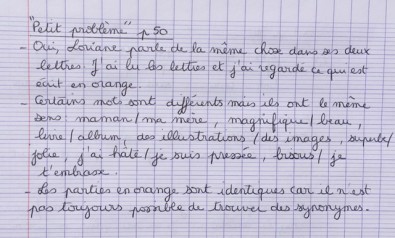 "Petit problème" p 50
- Oui, Loriane parle de la même chose dans ses deux
lettres. J'ai lu les lettres et j'ai regardé ce qui est
écrit en orange.
- Certains mots sont différents mais ils ont le même
sens maman/ma mère, magnifique/beau,
livre/album, des illustrations/des images, superbe/
jolie, j'ai hâte/je suis pressée, bisous/je
t'embrasse.
- Les parties en orange sont identiques car il n'est
pas toujours possible de trouver des synonymes.